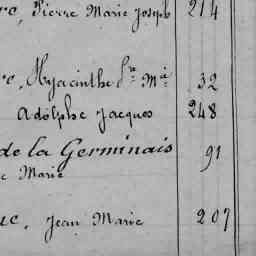 rc, Pierre Marie Joseph 214
rc, Hyacinthe Fre Mie 32
Adolphe Jacques 248
de la Germinais 91
c Marie
uc, Jean Marie 207